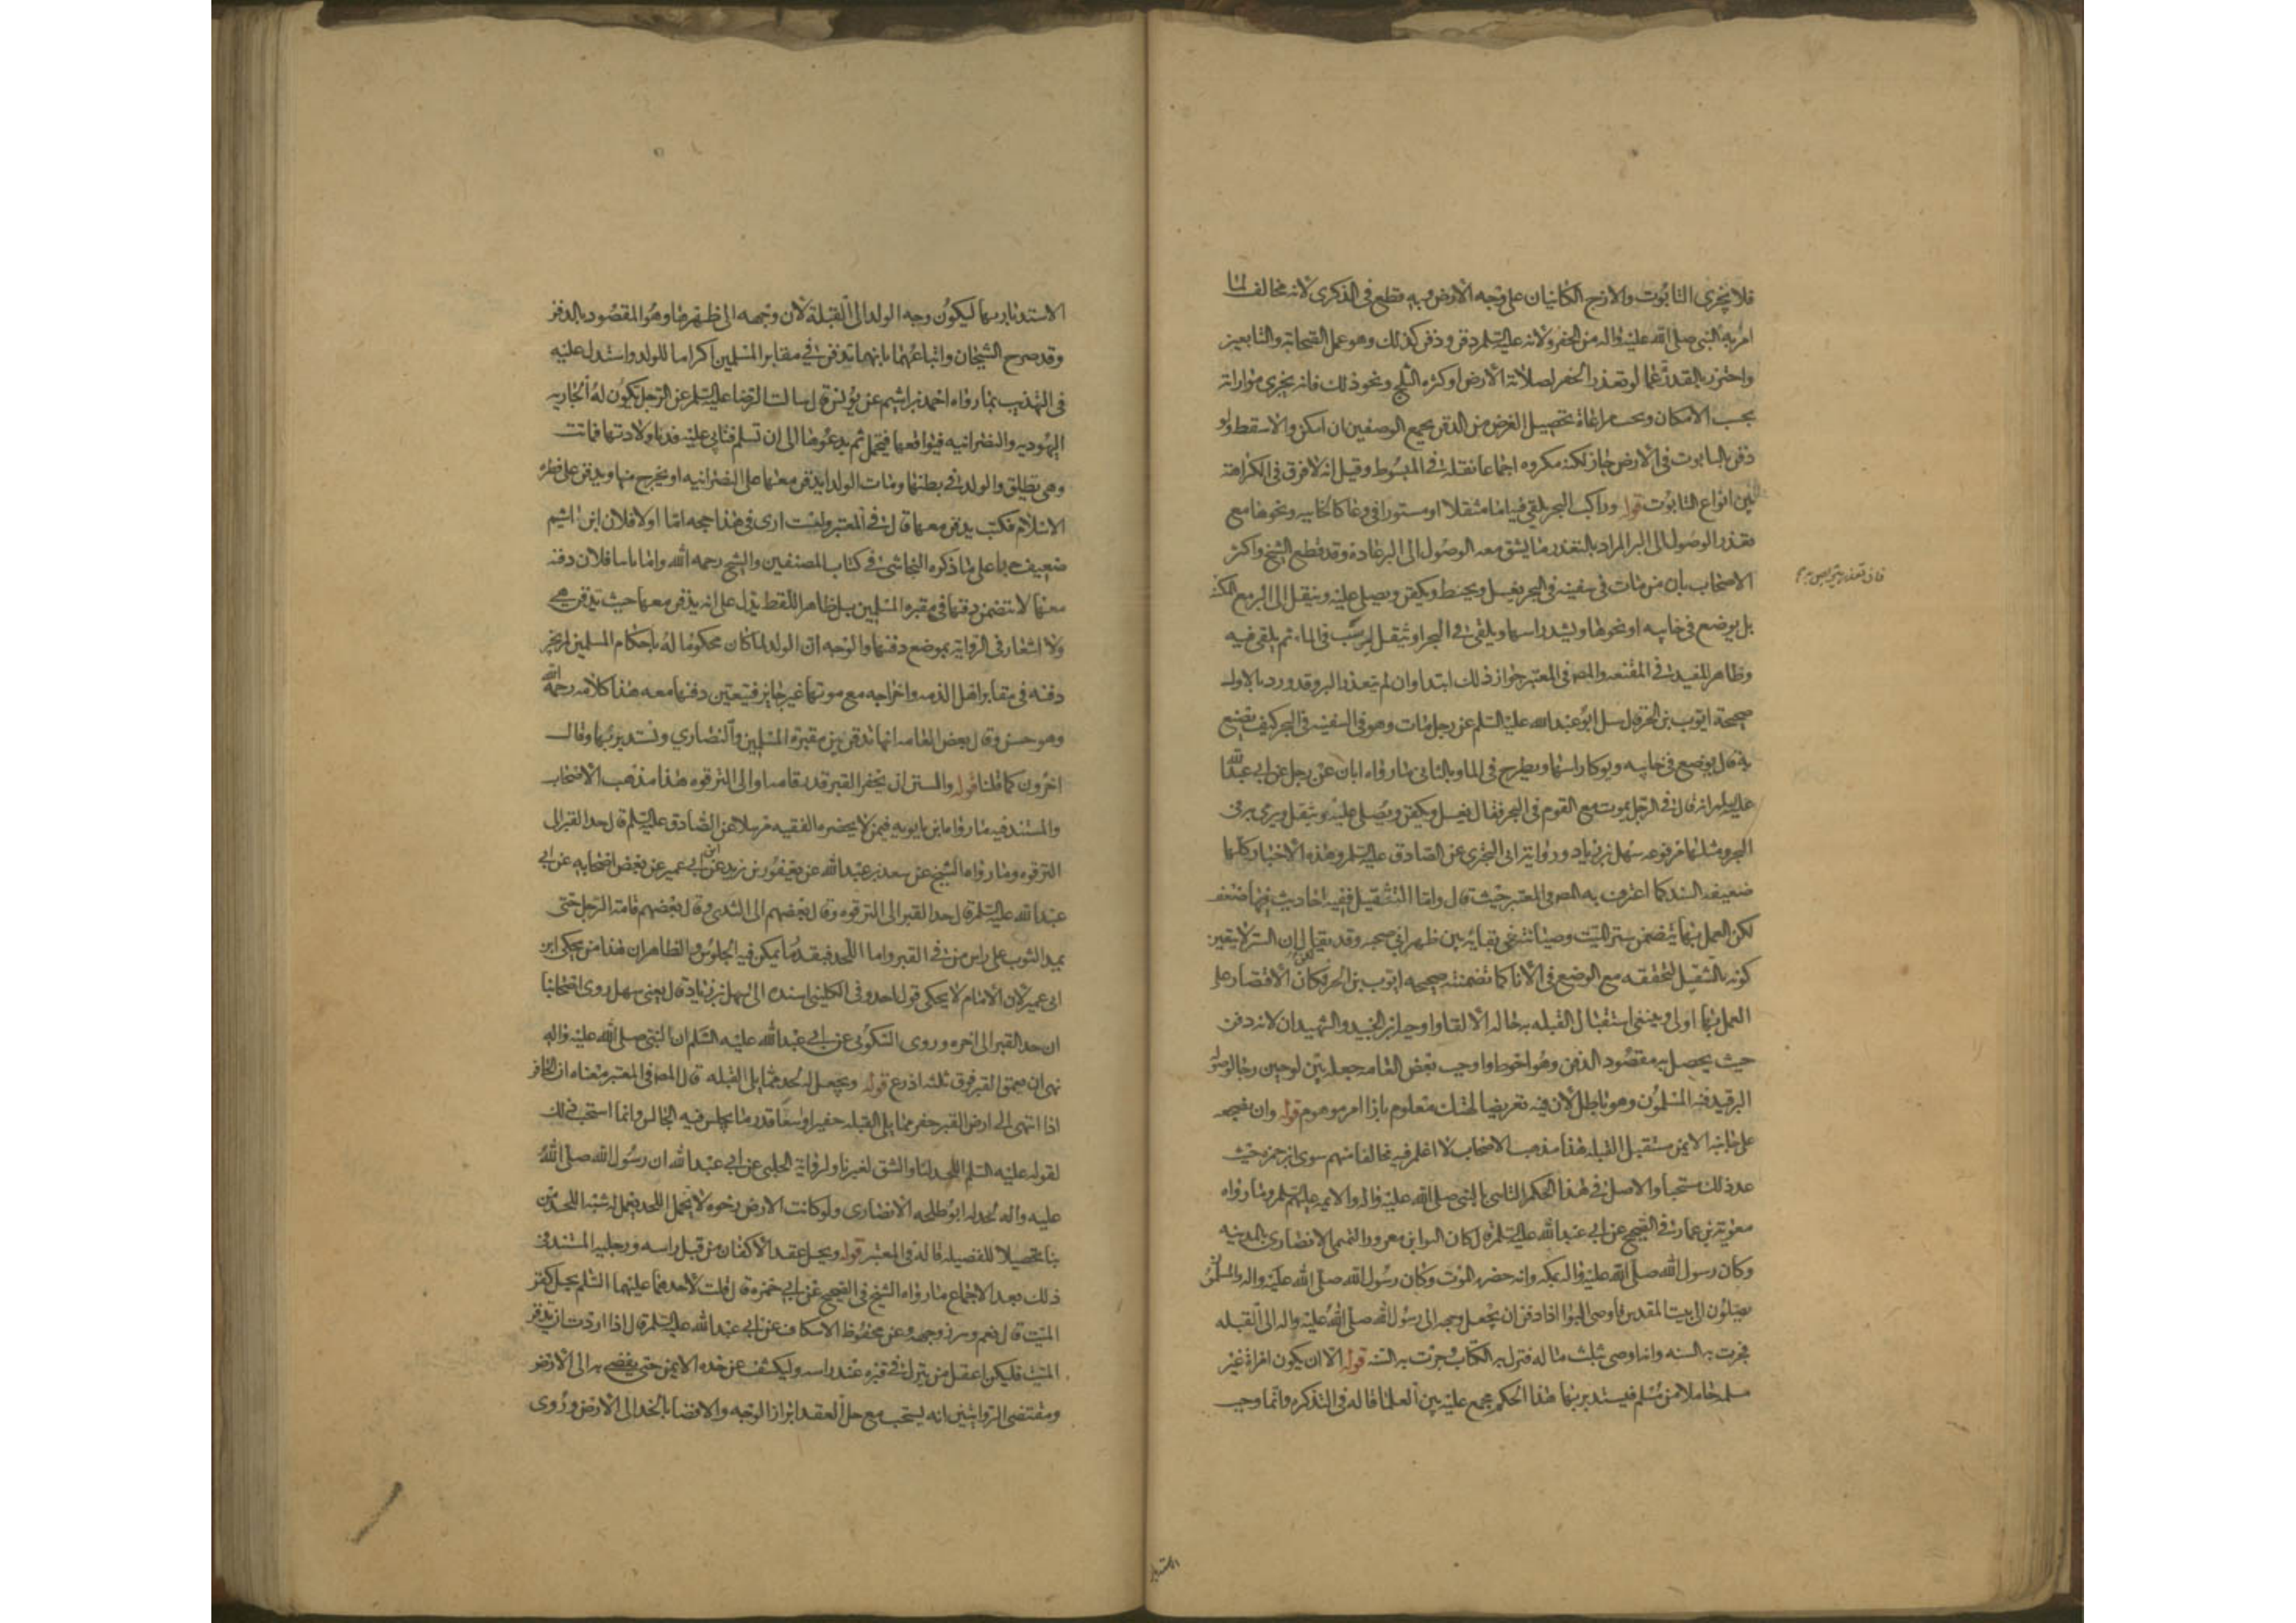 فلا يجزى التابوت والازج الكائنان على وجه الارض وبه قطع فى الذكرى لانه مخالف لما
امر به النبى صلى الله عليه واله من الحفر ولانه عليه السلم دفن ودفن كذلك وهو عمل الصحابة والتابعين
واحترز بالقدرة عما لو تعذر الحفر لصلابة الارض او كثرة الثلج ونحو ذلك فانه يجزى مواراته
بحسب الامكان ويجب مراعاة تحصيل الغرض من الدفن بجميع الوصفين ان امكن والا سقط ولو
دفن بالتابوت فى الارض جاز لكنه مكروه اجماعا نقله فى المبسوط وقيل انه لا فرق فى الكراهة
بين انواع التابوت قوله وراكب البحر يلقى فيه اما مثقلا او مستورا فى وعا كالخابيه ونحوها مع
تعذر الوصول الى البر المراد بالتعذر ما يشق معه الوصول الى البر عادة وقد قطع الشيخ واكثر
الاصحاب بان من مات فى سفينه فى البحر يغسل ويحنط ويكفن ويصلى عليه وينقل الى البر مع المكنه
فان تعذر
بل يوضع فى خابيه او نحوها ويشد راسها ويلقى فى البحر او يثقل ليرسب فى الماء ثم يلقى فيه
وظاهر المفيد فى المقنعه والمص فى المعتبر جواز ذلك ابتدا وان لم يتعذر البر وقد ورد بالاول
صحيحة ايوب بن الحر قال سئل ابو عبد الله عليه السلم عن رجل مات وهو فى السفينه فى البحر كيف يصنع
به قال يوضع فى خابيه ويوكا راسها ويطرح فى الما وبالثانى ما رواه ابان عن رجل عن ابى عبد الله
عليه السلم انه قال فى الرجل يموت مع القوم فى البحر فقال يغسل ويكفن ويصلى عليه ويثقل ويرمى به فى
البحر ومثلها مرفوعه سهل بن زياد ورواية ابى البخترى عن الصادق عليه السلم وهذه الاخبار كلها
ضعيفه السند كما اعترف به المص فى المعتبر حيث قال واما التثقيل ففيه احاديث فيها ضعف
لكن العمل بها يتضمن ستر الميت وصيانته عن بقايه بين ظهرانى صحبه وقد يقال ان الستر لا يتعين
كونه بالتثقيل لتحققه مع الوضع فى الانا كما تضمنته صحيحه ايوب بن الحر لكان الاقتصار على
العمل بها اولى وينبغى استقبال القبله به حاله الالقا واوجبه ابن الجنيد والشهيدان لانه دفن
حيث يحصل به مقصود الدفن وهو احوط واوجب بعض العامه جعله بين لوحين رجا لوصوله
البر فيدفنه المسلمون وهو باطل لان فيه تعريضا لهتك معلوم بازا امر موهوم قوله وان يضجعه
على جانبه الايمن مستقبل القبله هذا مذهب الاصحاب لا اعلم فيه مخالفا منهم سوى ابن حمزه حيث
عد ذلك مستحبا والاصل فى هذا الحكم التاسى بالنبى صلى الله عليه واله والايمه عليهم السلم وما رواه
معوية بن عمار فى الصحيح عن ابى عبد الله عليه السلم قال كان البرا بن معرور التميمى الانصارى بالمدينه
وكان رسول الله صلى الله عليه واله بمكه وانه حضره الموت وكان رسول الله صلى الله عليه واله والمسلمون
يصلون الى بيت المقدس فاوصى البرا اذا دفن ان يجعل وجهه الى رسول الله صلى الله عليه واله الى القبله
فجرت به السنه وانه اوصى بثلث ماله فنزل به الكتاب وجرت به السنه قوله الا ان يكون امراة غير
مسلمه حاملا من مسلم فيستدبر بها هذا الحكم مجمع عليه بين العلما قاله فى التذكره وانما وجب
الاستدبار
الاستدبار بها ليكون وجه الولد الى القبلة لان وجهه الى ظهرها وهو المقصود بالدفن
وقد صرح الشيخان واتباعهما بانها تدفن فى مقابر المسلمين اكراما للولد واستدل عليه
فى التهذيب بما رواه احمد بن اشيم عن يونس قال سالت الرضا عليه السلم عن الرجل يكون له الجاريه
اليهوديه والنصرانيه فيواقعها فتحمل ثم يدعوها الى ان تسلم فتابى عليه فدنا ولادتها فماتت
وهى تطلق والولد فى بطنها ومات الولد ايدفن معها على النصرانيه او يخرج منها ويدفن على فطرة
الاسلام فكتب يدفن معها قال فى المعتبر ولست ارى فى هذا حجه اما اولا فلان ابن اشيم
ضعيف جدا على ما ذكره النجاشى فى كتاب المصنفين والشيخ رحمه الله واما ثانيا فلان دفنه
معها لا يتضمن دفنها فى مقبره المسلمين بل ظاهر اللفظ يدل على انه يدفن معها حيث تدفن هى
ولا اشعار فى الرواية بموضع دفنها والوجه ان الولد لما كان محكوما له باحكام المسلمين لم يجز
دفنه فى مقابر اهل الذمه واخراجه مع موتها غير جايز فيتعين دفنها معه هذا كلامه رحمه الله
وهو حسن وقال بعض العامه انها تدفن بين مقبرة المسلمين والنصارى ونستدبر بها وقال
اخرون كما قلنا قوله والسنن ان يحفر القبر قدر قامه او الى الترقوه هذا مذهب الاصحاب
والمستند فيه ما رواه ابن بابويه فيمن لا يحضره الفقيه مرسلا عن الصادق عليه السلم قال حد القبر الى
الترقوه وما رواه الشيخ عن سعد بن عبد الله عن يعقوب بن يزيد عن ابن ابى عمير عن بعض اصحابه عن ابى
عبد الله عليه السلم قال حد القبر الى الترقوه وقال بعضهم الى الثدى وقال بعضهم قامة الرجل حتى
يمد الثوب على راس من فى القبر واما اللحد فبقدر ما يمكن فيه الجلوس والظاهر ان هذا من محكى ابن
ابى عمير لان الامام لا يحكى قول احد وفى الكلينى اسنده الى سهل بن زياد قال يعنى سهل روى اصحابنا
ان حد القبر الى اخره وروى السكونى عن ابى عبد الله عليه السلم ان النبى صلى الله عليه واله
نهى ان يعمق القبر فوق ثلثه اذرع قوله ويجعل له لحد مما يلى القبله قال المص فى المعتبر معناه ان الحافر
اذا انتهى الى ارض القبر حفر مما يلى القبله حفيرا واسعا قدر ما يجلس فيه الجالس وانما استحب ذلك
لقوله عليه السلم اللحد لنا والشق لغيرنا ولرواية الحلبى عن ابى عبد الله ان رسول الله صلى الله
عليه واله لحد له ابو طلحه الانصارى ولو كانت الارض رخوه لا تحتمل اللحد يعمل له شبه اللحد من
بنا تحصيلا للفضيله قاله فى المعتبر قوله ويحل عقد الاكفان من قبل راسه ورجليه المستند فى
ذلك بعد الاجماع ما رواه الشيخ فى الصحيح عن ابى حمزه قال قلت لاحدهما عليهما السلم يحل كفن
الميت قال نعم ويبرز وجهه وعن محفوظ الاسكاف عن ابى عبد الله عليه السلم قال اذا اردت ان تدفن
الميت فليكن اعقل من ينزل فى قبره عند راسه وليكشف عن خده الايمن حتى يفضى به الى الارض
ومقتضى الروايتين انه يستحب مع حل العقد ابراز الوجه والافضا بالخد الى الارض وروى